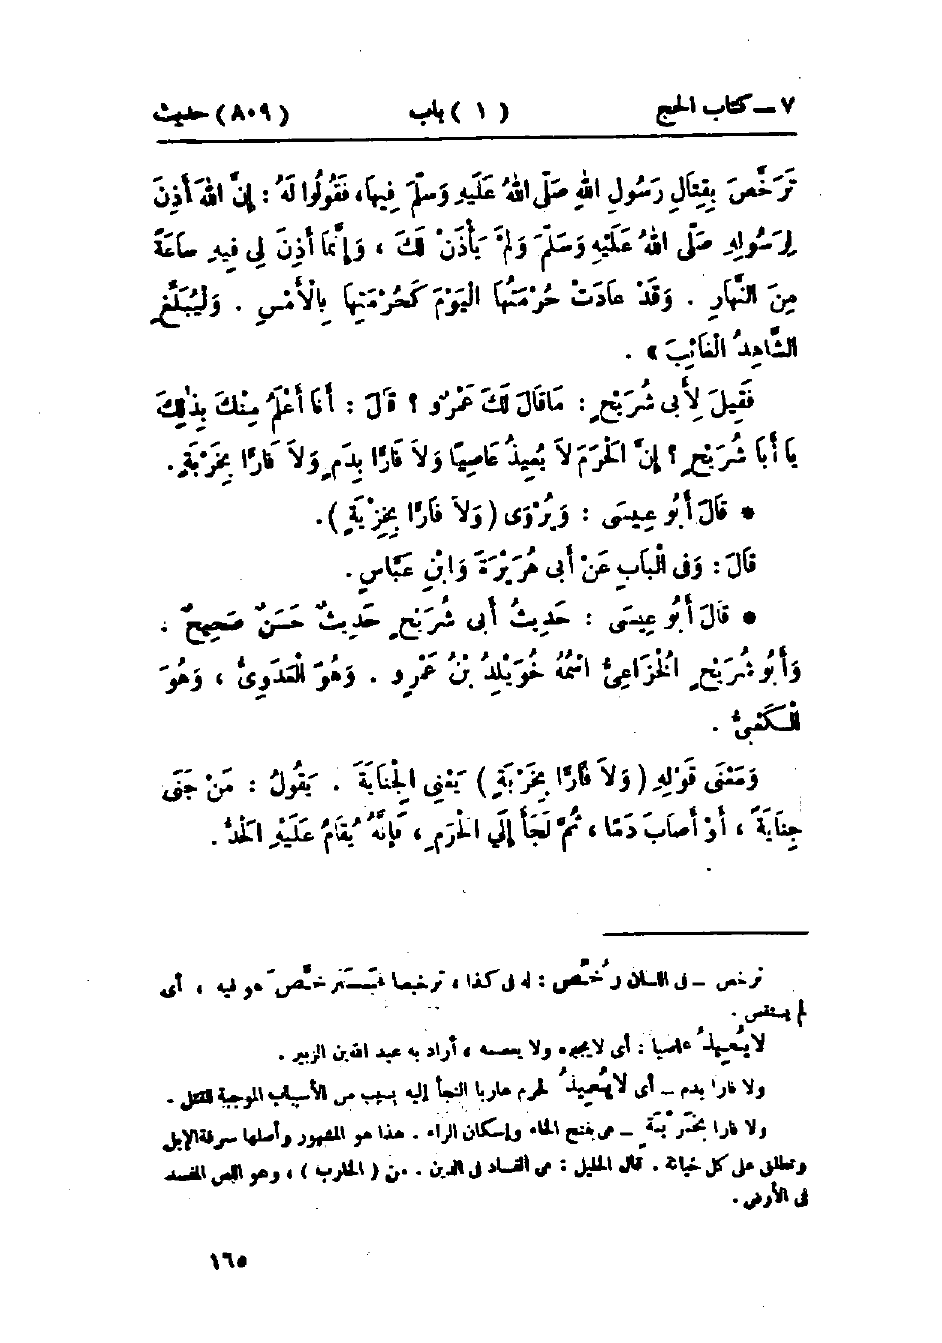 ٧ — كتاب الحج ( ١ ) باب (٨٠٩) حديث
تَرَخَّصَ بِقِتَالِ رَسُولِ اللهِ صَلَّى اللهُ عَلَيْهِ وَسَلَّمَ فِيهَا، فَقُولُوا لَهُ : إِنَّ اللهَ أَذِنَ
لِرَسُولِهِ صَلَّى اللهُ عَلَيْهِ وَسَلَّمَ وَلَمْ يَأْذَنْ لَكَ ، وَإِنَّمَا أَذِنَ لِي فِيهِ سَاعَةً
مِنَ النَّهَارِ . وَقَدْ عَادَتْ حُرْمَتُهَا الْيَوْمَ كَحُرْمَتِهَا بِالْأَمْسِ . وَلْيُبَلِّغِ
الشَّاهِدُ الْغَائِبَ » .
فَقِيلَ لِأَبِى شُرَيْحٍ : مَاقَالَ لَكَ عَمْرٌو ؟ قَالَ : أَنَا أَعْلَمُ مِنْكَ بِذٰلِكَ
يَا أَبَا شُرَيْحٍ ؟ إِنَّ الْحَرَمَ لَا يُعِيذُ عَاصِيًا وَلَا فَارًّا بِدَمٍ وَلَا فَارًّا بِخَرْبَةٍ .
* قَالَ أَبُو عِيسَى : وَيُرْوَى ( وَلَا فَارًّا بِخِزْيَةٍ ) .
قَالَ : وَفِى الْبَابِ عَنْ أَبِى هُرَيْرَةَ وَابْنِ عَبَّاسٍ .
* قَالَ أَبُو عِيسَى : حَدِيثُ أَبِى شُرَيْحٍ حَدِيثٌ حَسَنٌ صَحِيحٌ .
وَأَبُو شُرَيْحٍ الْخُزَاعِىُّ اسْمُهُ خُوَيْلِدُ بْنُ عَمْرٍو . وَهُوَ الْعَدَوِىُّ ، وَهُوَ
الْكَعْبِىُّ .
وَمَعْنَى قَوْلِهِ ( وَلَا فَارًّا بِخَرْبَةٍ ) يَعْنِي الْجِنَايَةَ . يَقُولُ : مَنْ جَنَى
جِنَايَةً ، أَوْ أَصَابَ دَمًا ، ثُمَّ لَجَأَ إِلَي الْحَرَمِ ، فَإِنَّهُ يُقَامُ عَلَيْهِ الْحَدُّ .
ترخص — فى اللسان رُخِّص : له فى كذا ، ترخيصا فترخَّصَ هو فيه ، أى
لم يستقص .
لا يُعيذُ عاصيا : أى لايجيره ولا يعصمه ، أراد به عبد الله بن الزبير .
ولا فارا بدم — أى لا يُعيذُ الحرم هاربا التجأ إليه بسبب من الأسباب الموجبة للقتل .
ولا فارا بخَرْبَةٍ — هى بفتح الخاء وإسكان الراء . هذا هو المشهور وأصلها سرقة الإبل
وتطلق على كل خيانة . قال الخليل : هى الفساد فى الدين . من ( الخارب ) ، وهو اللص المفسد
فى الأرض .
١٦٥